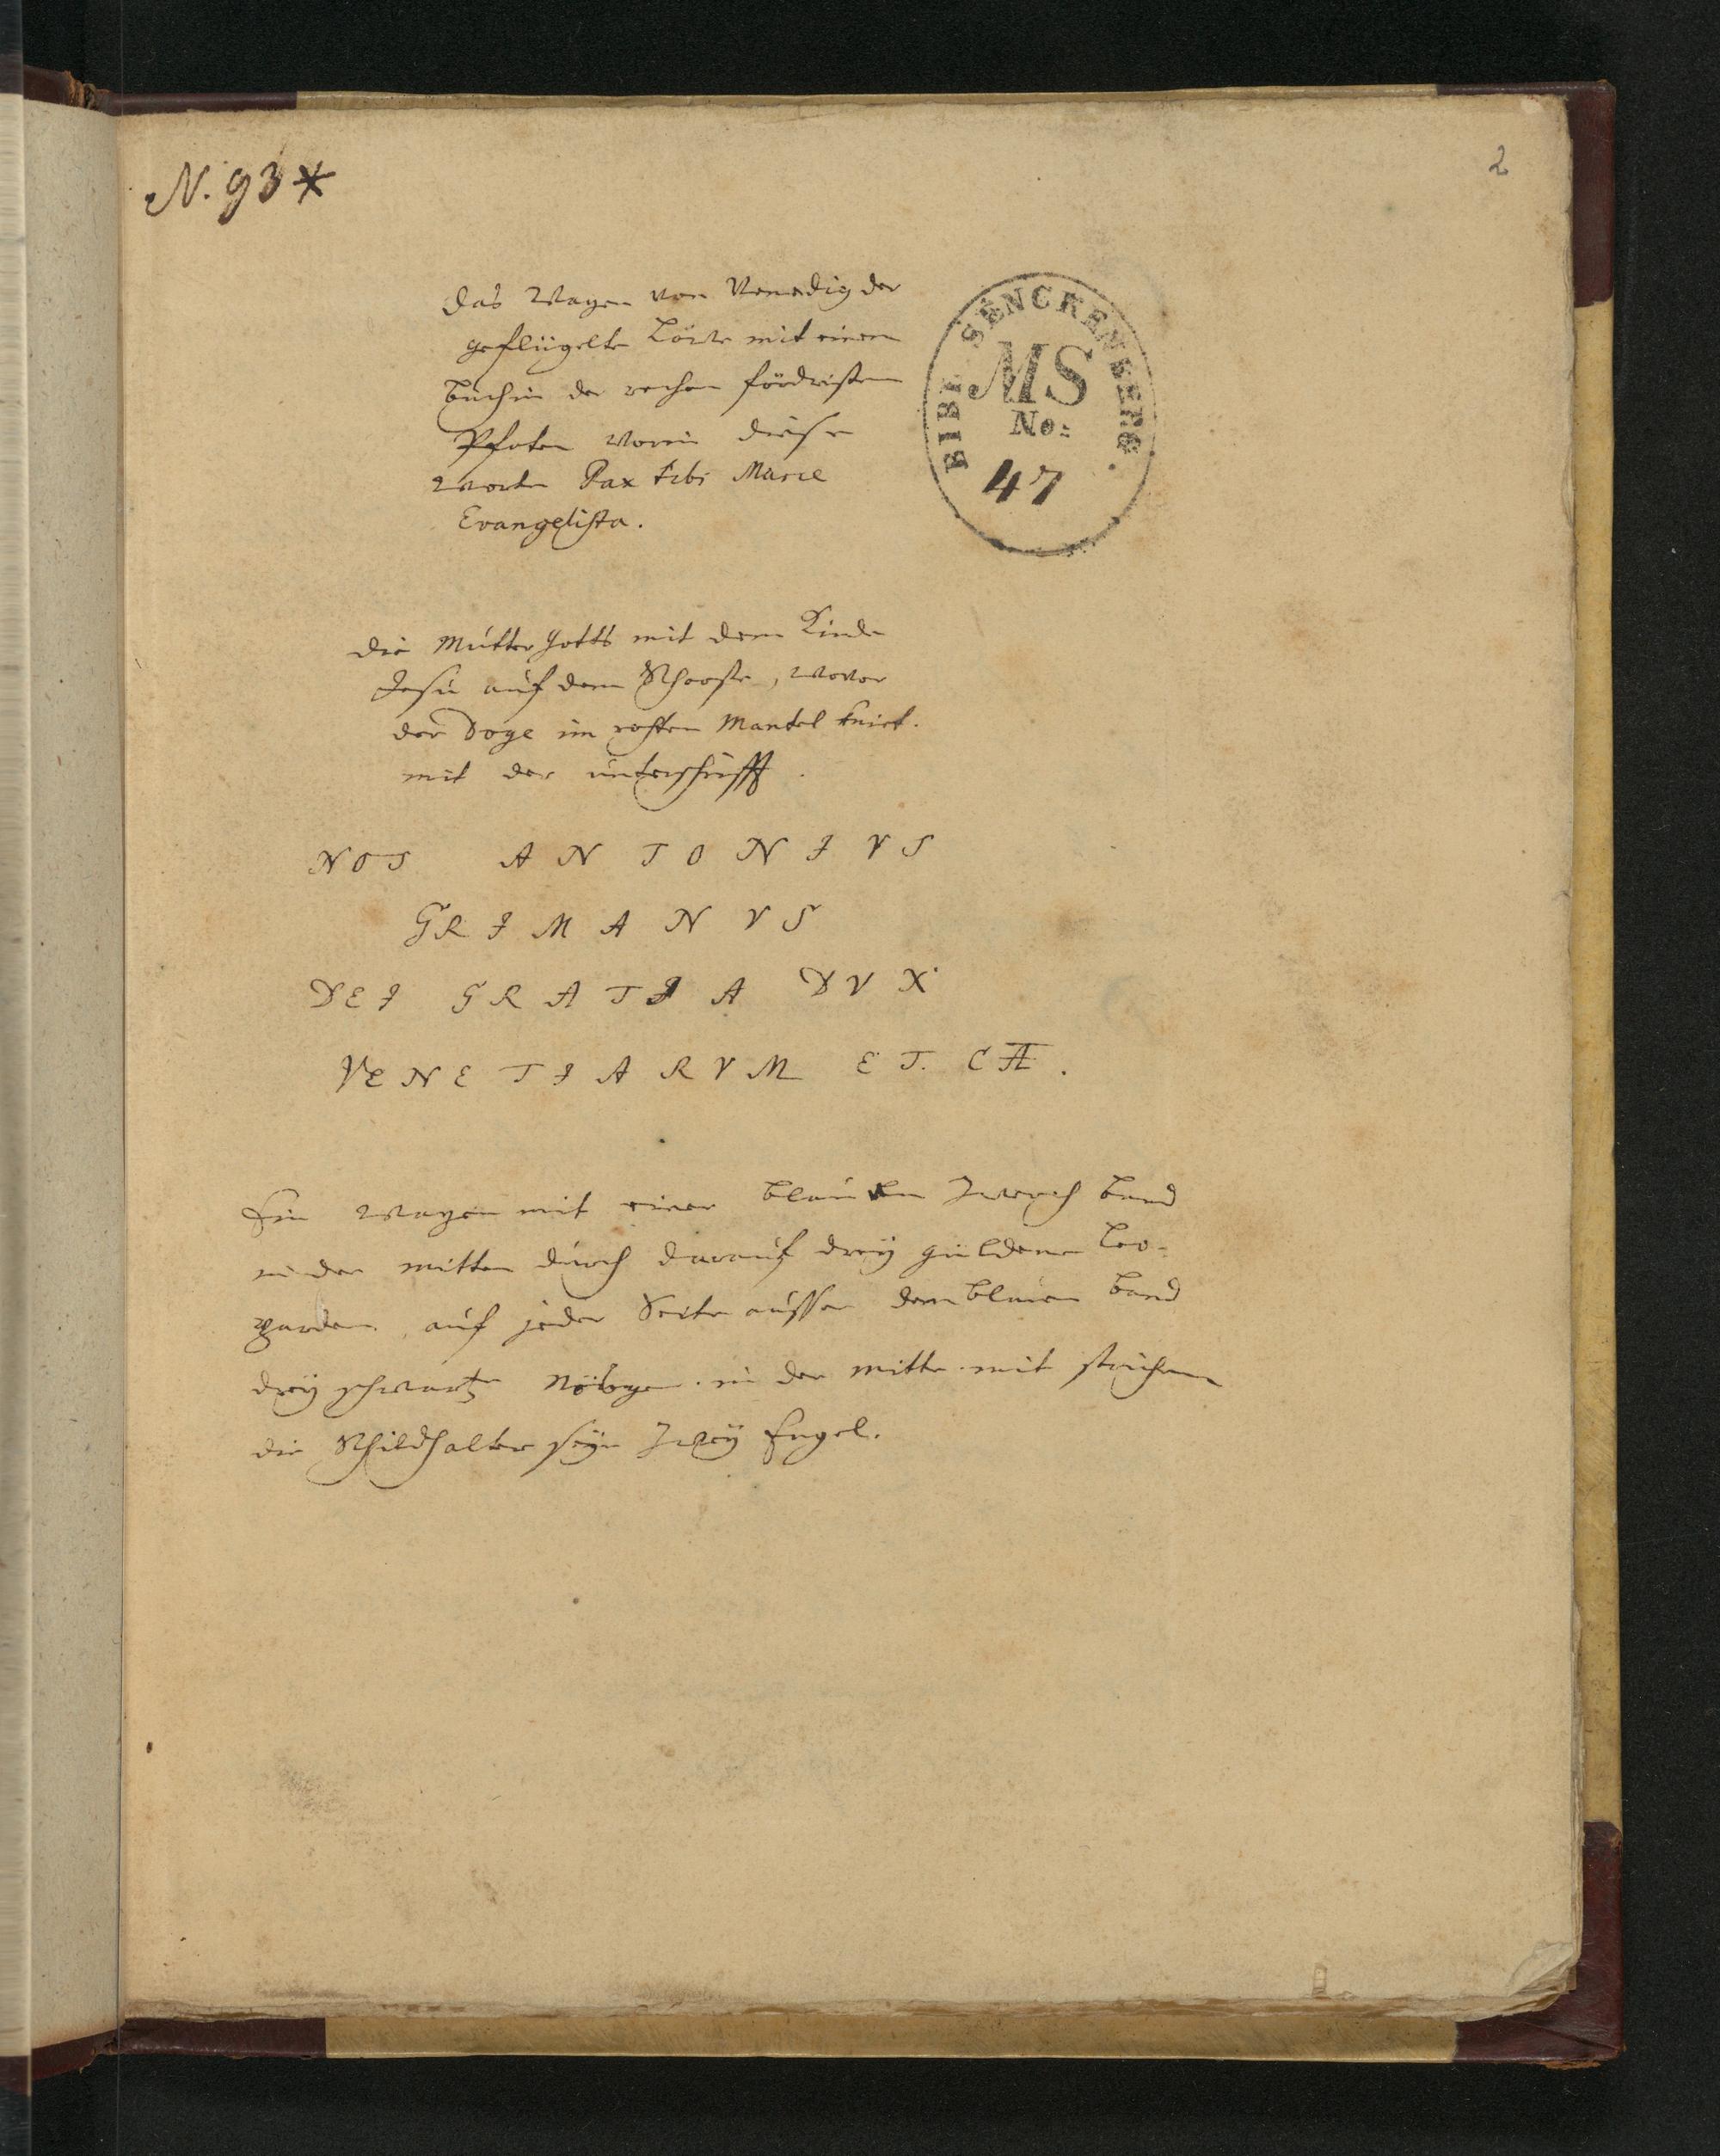 N. 93 *
2
das Wapen von Venedig der
geflügelte Löwe mit einem
Buch in der rechen fördristen
Pfoten worin diese
worte Pax tibi Marce
Evangelista.
BIBL. SENCKENBERG.
MS
No:
47
die Mutter Gotts mit dem Kinde
Jesu auf dem Schoose, wovor
der Doge im rothen Mantel kniet.
mit der unterschrifft.
NOS ANTONIVS
GRIMANVS
DEI GRATIA DVX
VENETIARVM ET. CÆ.
Ein Wapen mit einer blauen Zwerch band
in der mitten durch darauf drey güldene Leo-
parden, auf jeder Seite ausser dem blauen band
drey schwartze in der mitte mit
die Schildhalter seyn Zwey Engel.